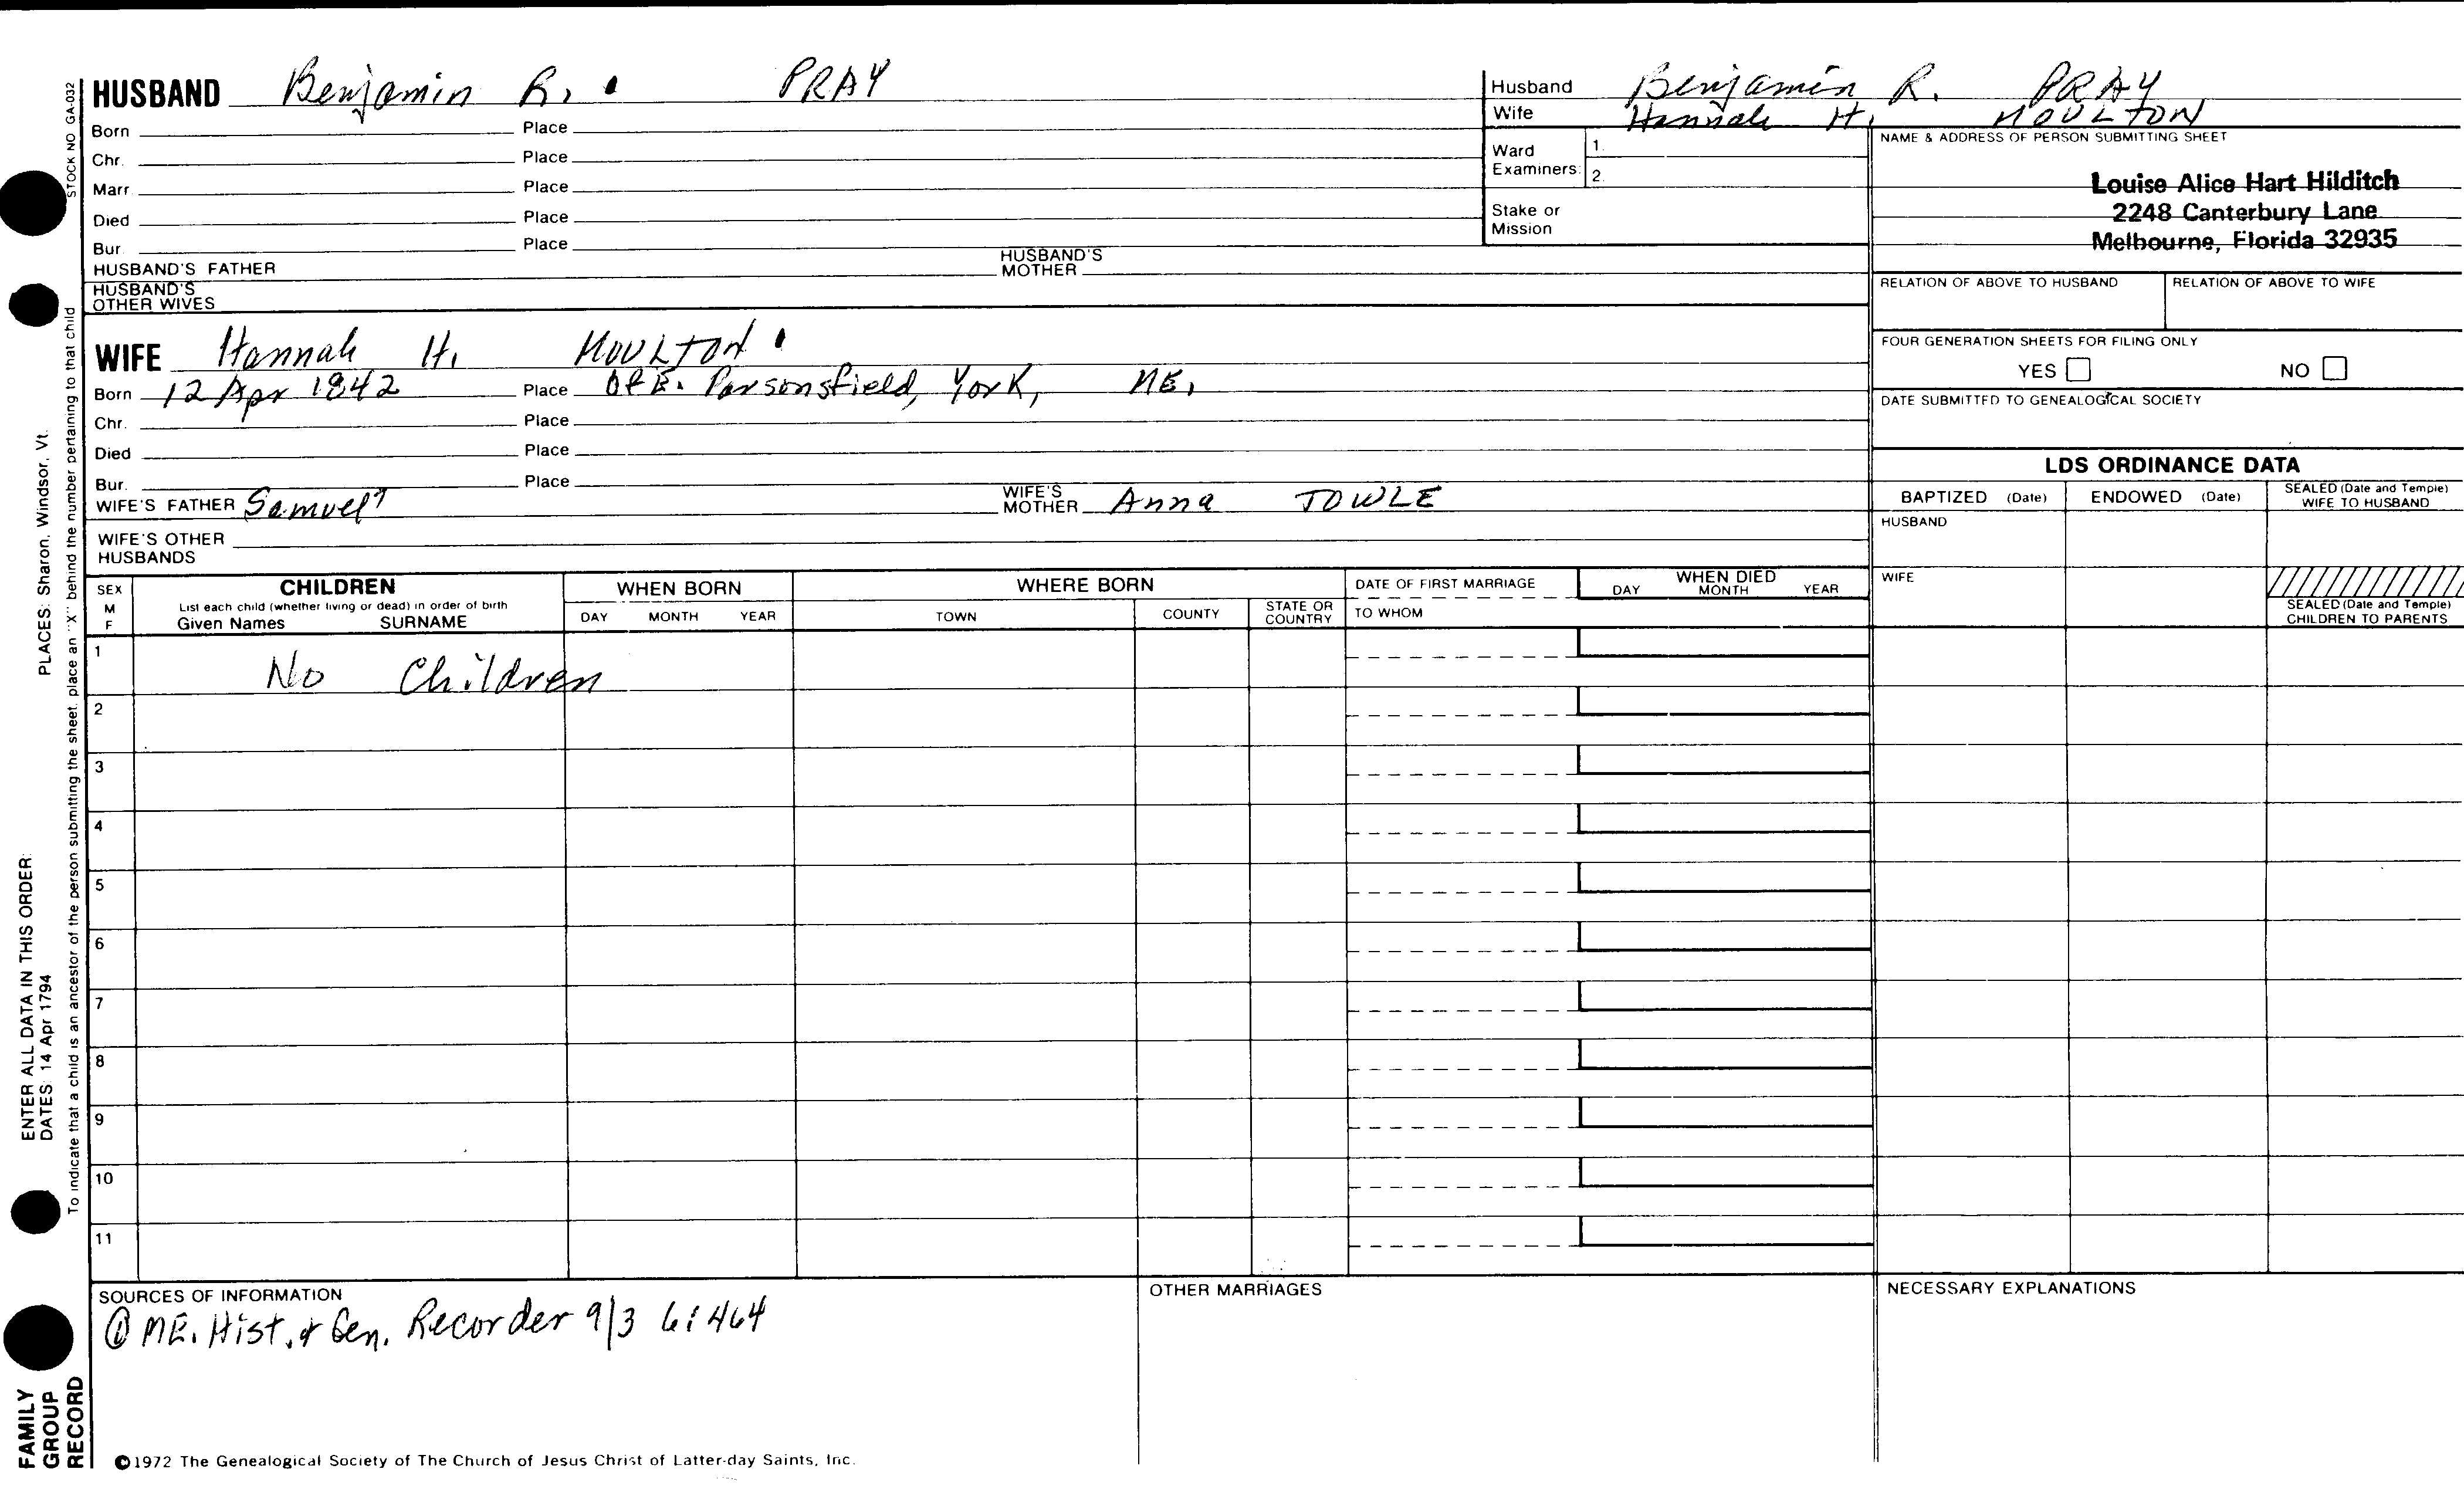 STOCK NO GA-032
HUSBAND Benjamin R. PRAY
Born Place
Chr. Place
Marr. Place
Died Place
Bur. Place
HUSBAND'S FATHER HUSBAND'S MOTHER
HUSBAND'S OTHER WIVES
Husband Benjamin R. PRAY
Wife Hannah H. MOULTON
Ward Examiners: 1.
2.
Stake or Mission
NAME & ADDRESS OF PERSON SUBMITTING SHEET
Louise Alice Hart Hilditch
2248 Canterbury Lane
Melbourne, Florida 32935
RELATION OF ABOVE TO HUSBAND RELATION OF ABOVE TO WIFE
FOUR GENERATION SHEETS FOR FILING ONLY
YES NO
DATE SUBMITTED TO GENEALOGICAL SOCIETY
WIFE Hannah H. MOULTON
Born 12 Apr 1842 Place Of E. Parsonsfield, York, ME.
Chr. Place
Died Place
Bur. Place
WIFE'S FATHER Samuel WIFE'S MOTHER Anna TOWLE
WIFE'S OTHER HUSBANDS
LDS ORDINANCE DATA
BAPTIZED (Date) ENDOWED (Date) SEALED (Date and Temple) WIFE TO HUSBAND
HUSBAND
WIFE
SEALED (Date and Temple) CHILDREN TO PARENTS
SEX M F
CHILDREN
List each child (whether living or dead) in order of birth
Given Names SURNAME
WHEN BORN
DAY MONTH YEAR
WHERE BORN
TOWN COUNTY STATE OR COUNTRY
DATE OF FIRST MARRIAGE
TO WHOM
WHEN DIED
DAY MONTH YEAR
1 No Children
2
3
4
5
6
7
8
9
10
11
SOURCES OF INFORMATION
① ME. Hist. & Gen. Recorder 9/3 6:464
OTHER MARRIAGES
NECESSARY EXPLANATIONS
©1972 The Genealogical Society of The Church of Jesus Christ of Latter-day Saints, Inc.
FAMILY
GROUP
RECORD
ENTER ALL DATA IN THIS ORDER:
DATES: 14 Apr 1794 PLACES: Sharon, Windsor, Vt.
To indicate that a child is an ancestor of the person submitting the sheet, place an "X" behind the number pertaining to that child